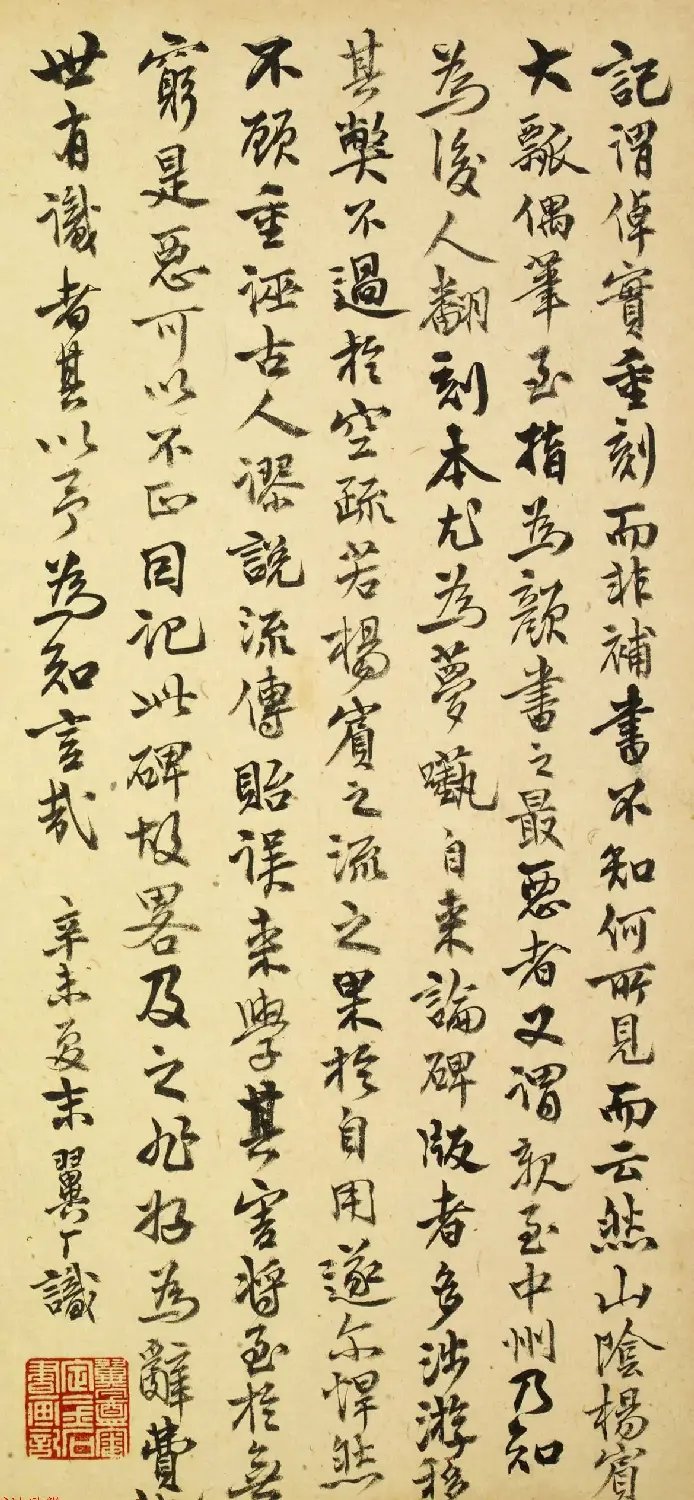 記謂倬實重刻而非補書不知何所見而云然山陰楊賓
大瓢偶筆至指為顏書之最惡者又謂親至中州乃知
為後人翻刻本尤為夢囈自來論碑版者多涉游移
其弊不過於空疏若楊賓之流之果於自用遂尔悍然
不顧重誣古人謬說流傳貽誤來學其害將至於無
窮是惡可以不正因記此碑故畧及之非好為辭費
世有識者其以予為知言哉
辛未夏末翼丁識